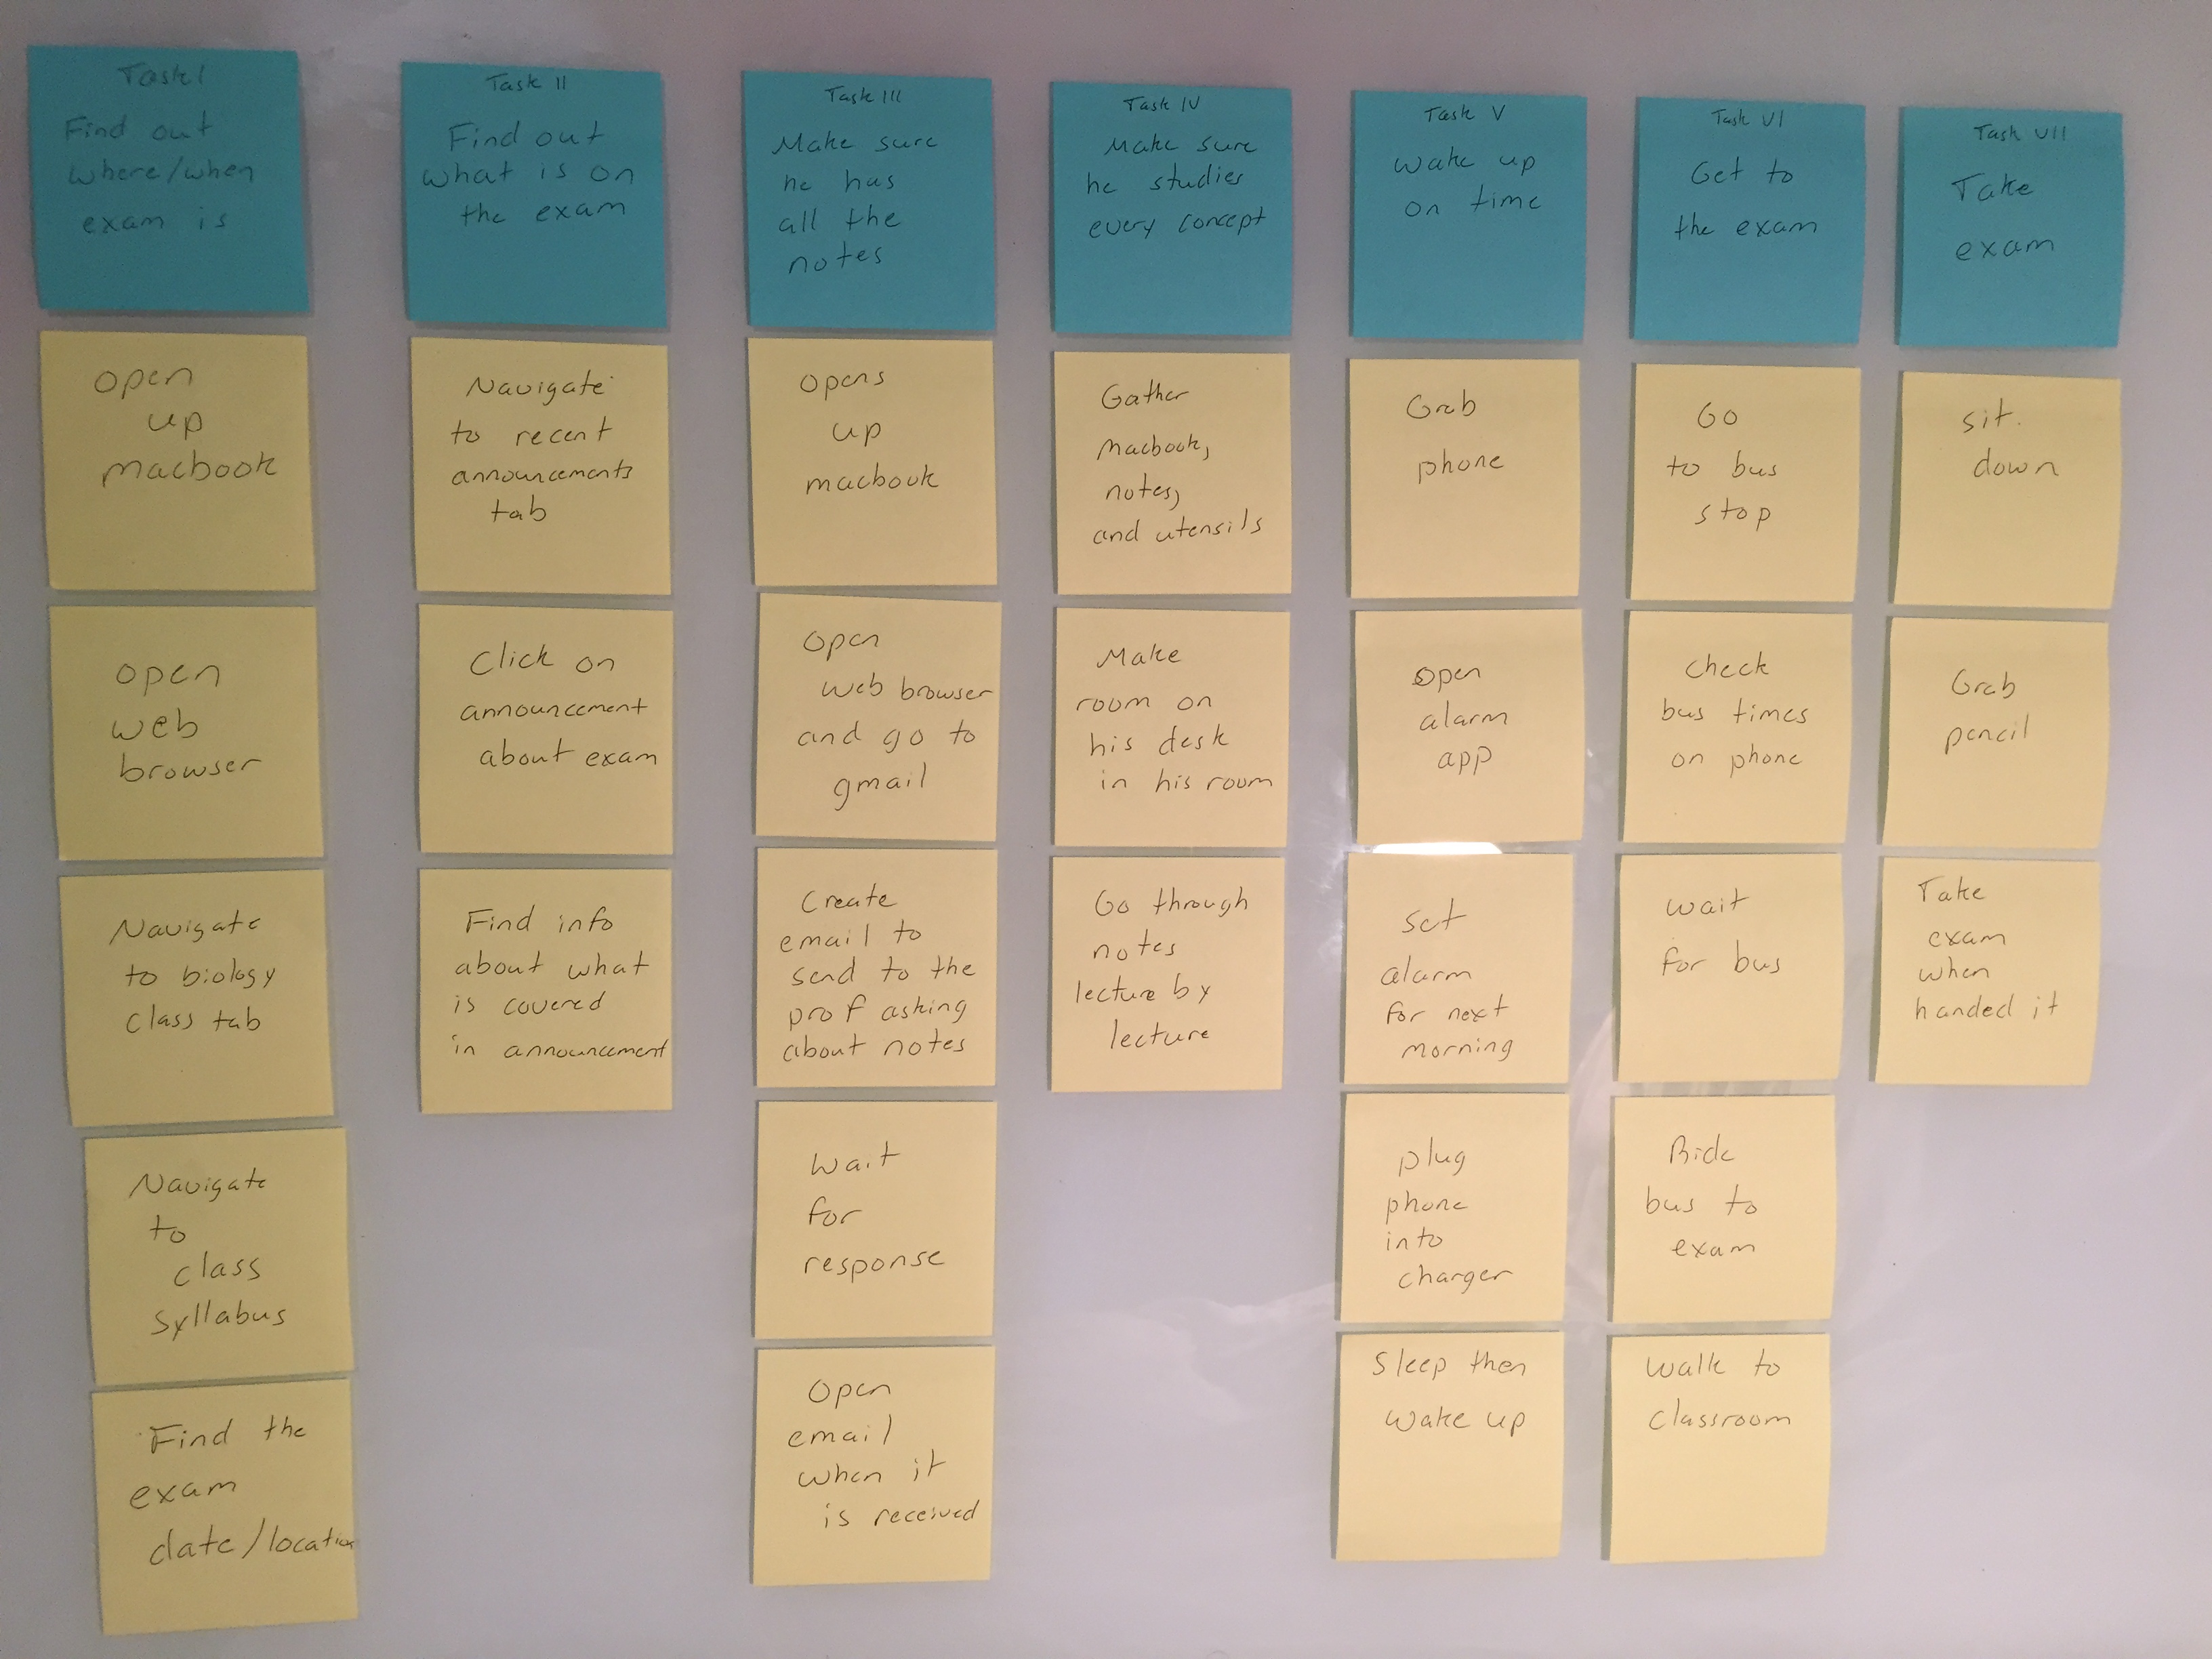 Task I
Find out
where/when
exam is
Open
up
macbook
open
web
browser
Navigate
to biology
class tab
Navigate
to
class
syllabus
Find the
exam
date/location
Task II
Find out
what is on
the exam
Navigate
to recent
announcements
tab
Click on
announcement
about exam
Find info
about what
is covered
in announcement
Task III
Make sure
he has
all the
notes
Opens
up
macbook
Open
web browser
and go to
gmail
Create
email to
send to the
prof asking
about notes
Wait
for
response
Open
email
when it
is received
Task IV
Make sure
he studies
every concept
Gather
macbook,
notes,
and utensils
Make
room on
his desk
in his room
Go through
notes
lecture by
lecture
Task V
Wake up
on time
Grab
phone
Open
alarm
app
Set
alarm
for next
morning
plug
phone
into
charger
Sleep then
wake up
Task VI
Get to
the exam
Go
to bus
stop
Check
bus times
on phone
Wait
for bus
Ride
bus to
exam
Walk to
classroom
Task VII
Take
exam
sit
down
Grab
pencil
Take
exam
when
handed it